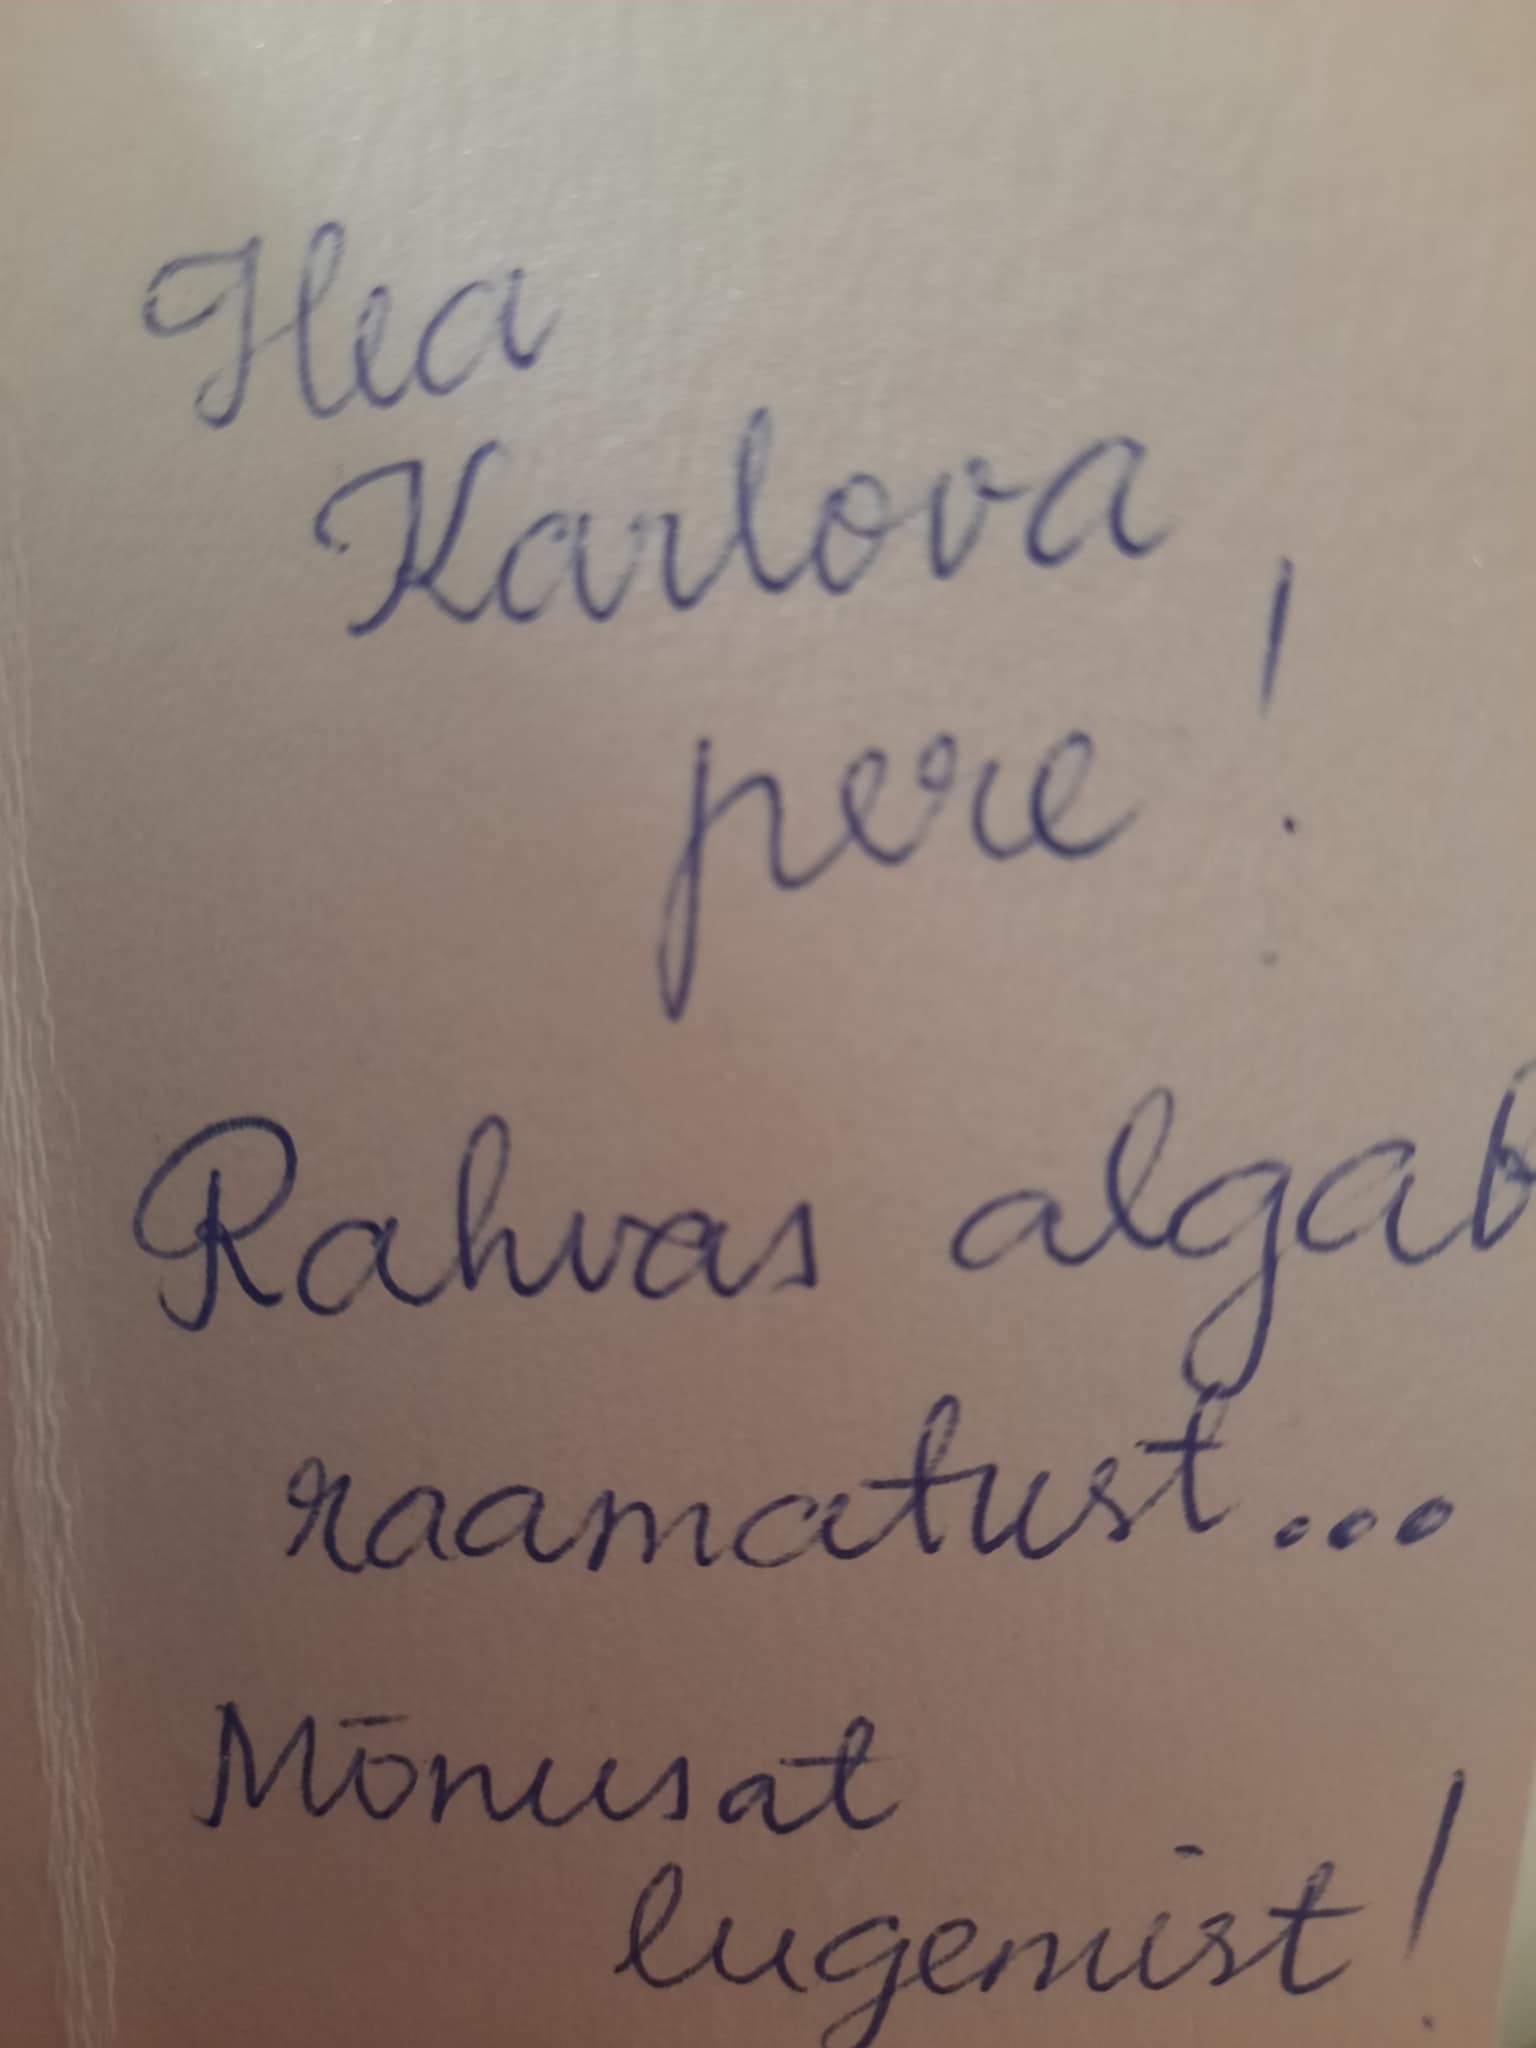 Hea
Karlova
pere!
Rahvas algab
raamatust...
Mõnusat
lugemist!